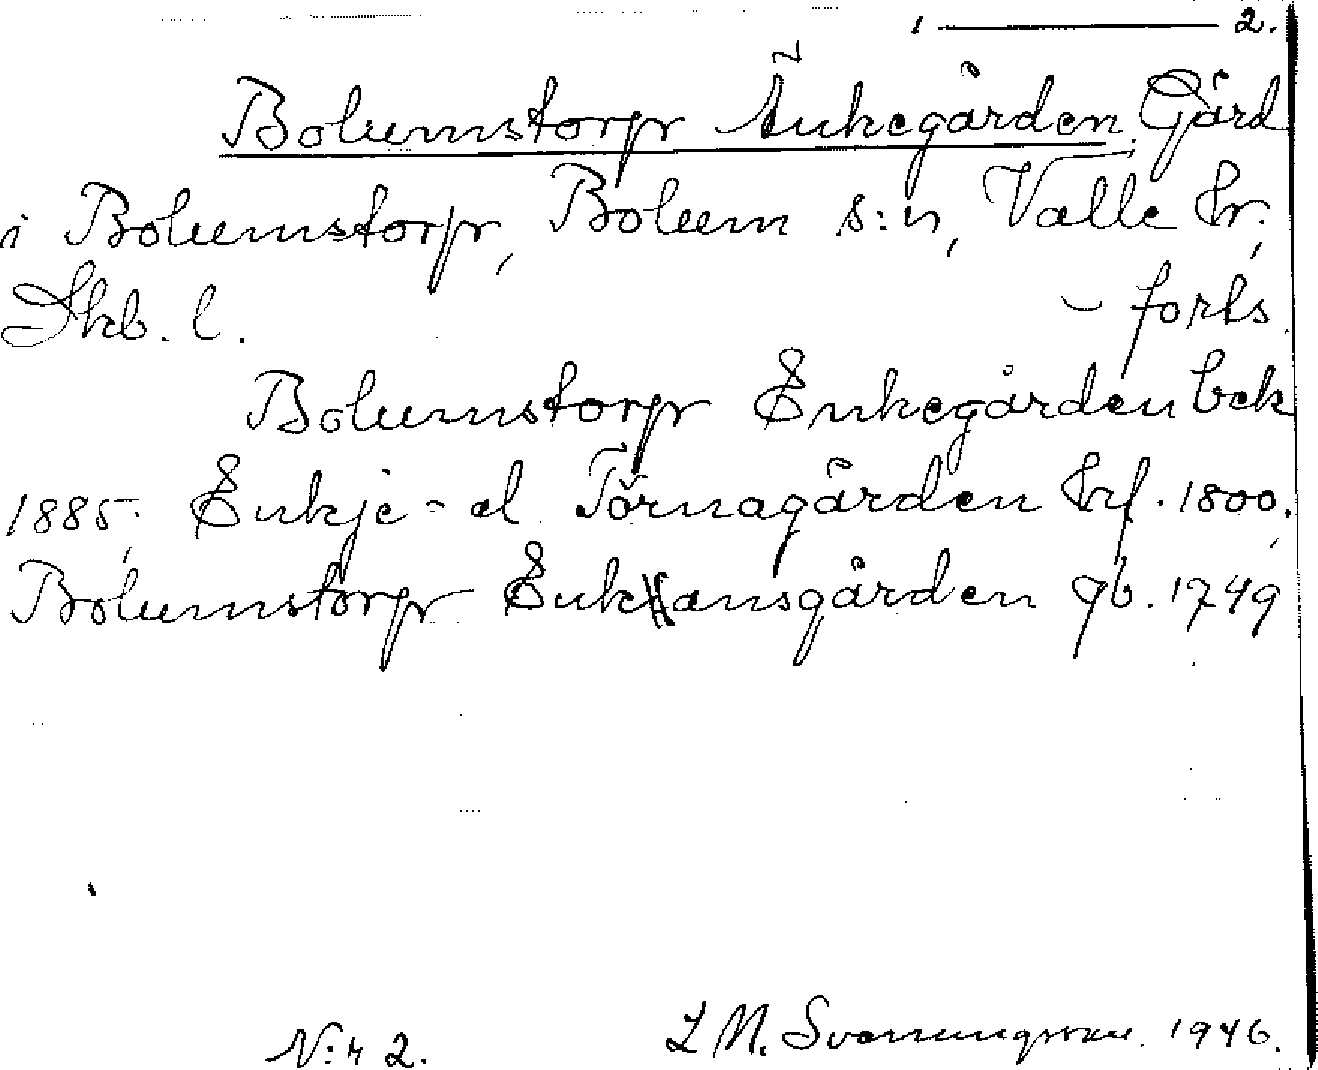 1 ——— 2.
Bolumstorp Änkegården. Gård
i Bolumstorp, Bolum s:n, Valle hr;
Skb. l. – forts.
Bolumstorp Enkegården bck
1885; Enkje- el Törnagården krf. 1800;
Bolumstorp Enkansgården gb. 1749
N:r 2. L M. 1946.